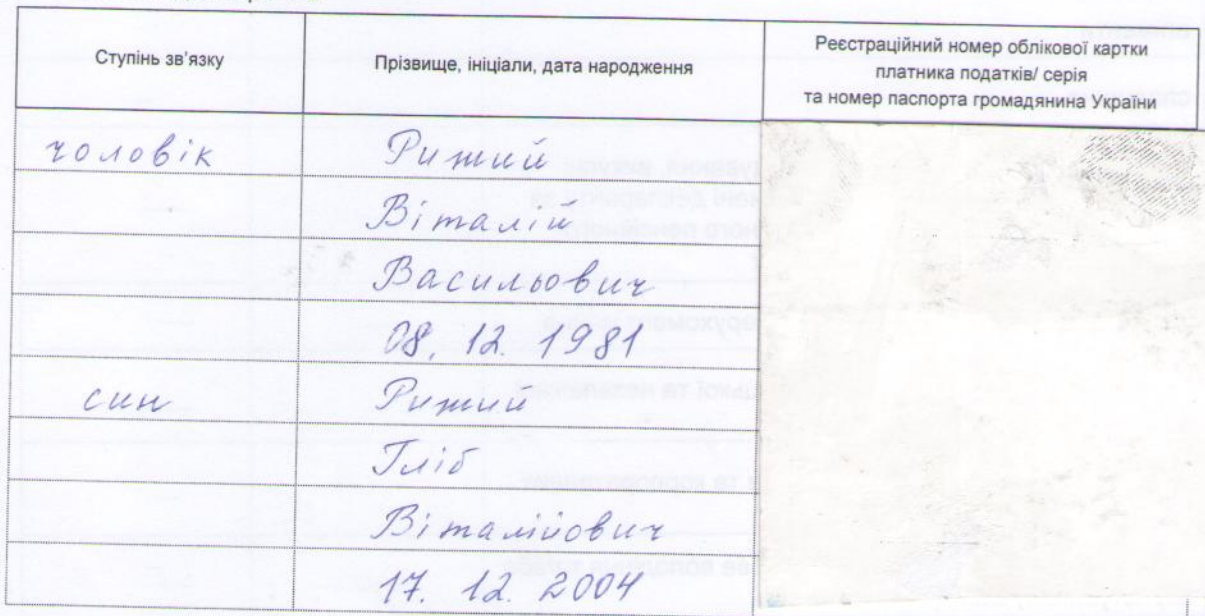 Ступінь зв’язку
Прізвище, ініціали, дата народження
Реєстраційний номер облікової картки
платника податків/ серія
та номер паспорта громадянина України
чоловік
Рижий
Віталій
Васильович
08. 12. 1981
син
Рижий
Гліб
Віталійович
17. 12. 2004